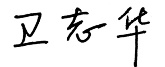 卫志华